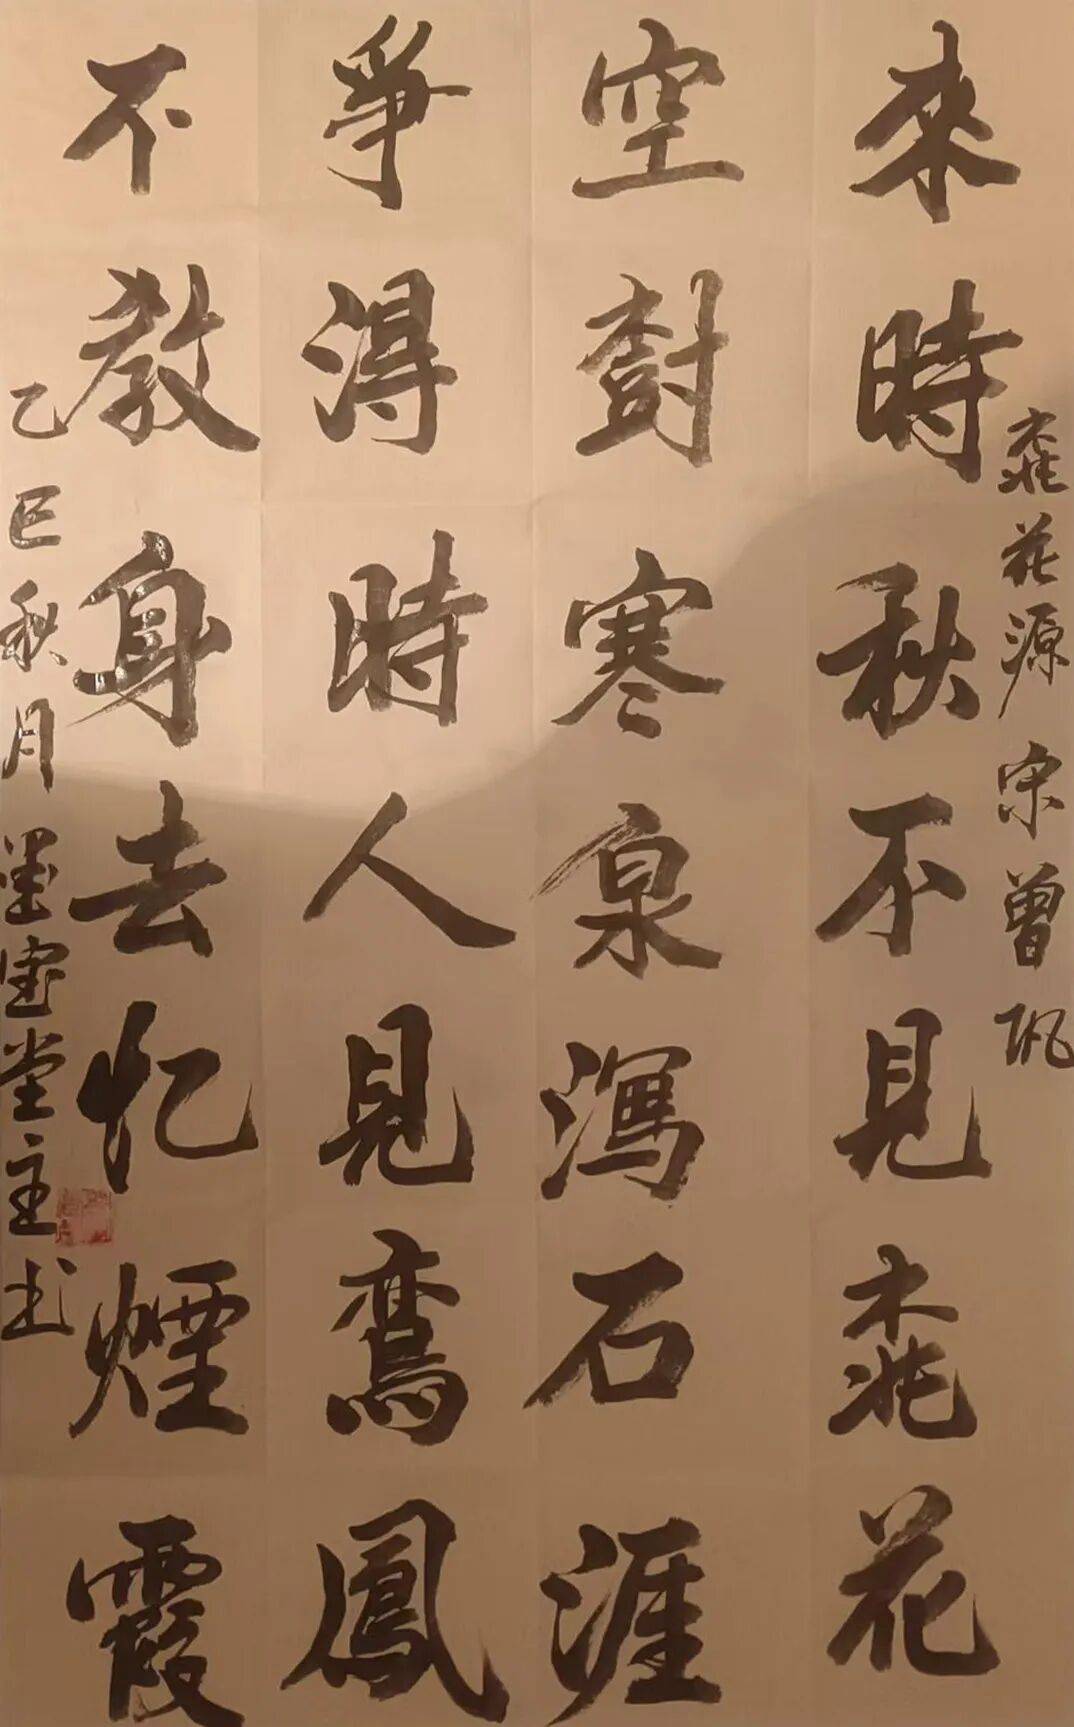 來時秋不見桃花
空對寒泉瀉石涯
爭得時人見鸞鳳
不教身去忆煙霞
桃花源 宋曾巩
乙巳秋月墨宝堂主书